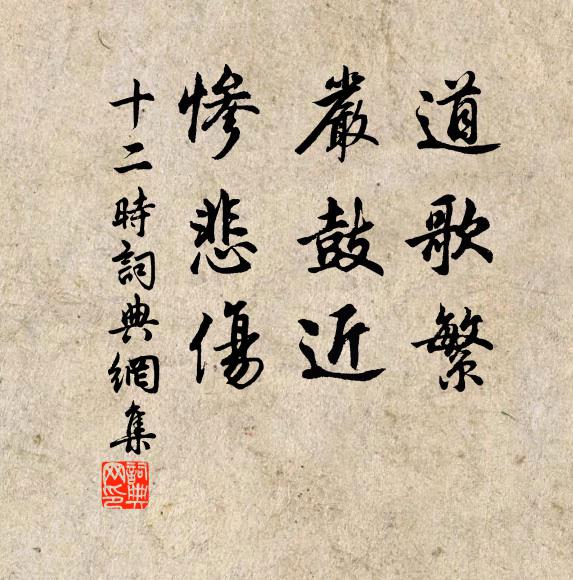 道歌繁
嚴鼓近
慘悲傷
十二時詞典網集
詞典网印